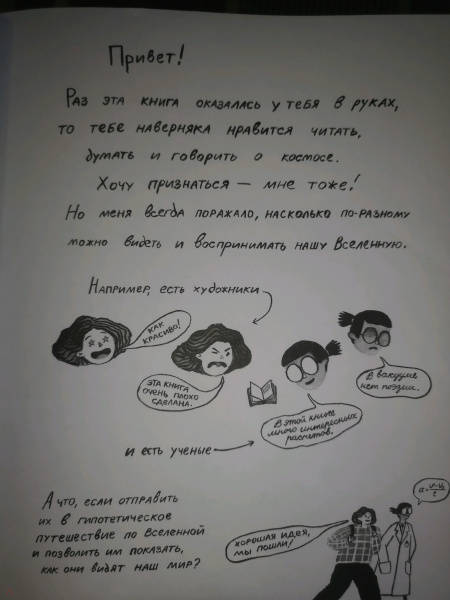 Привет!
Раз эта книга оказалась у тебя в руках,
то тебе наверняка нравится читать,
думать и говорить о космосе.
Хочу признаться — мне тоже!
Но меня всегда поражало, насколько по-разному
можно видеть и воспринимать нашу Вселенную.
Например, есть художники
Как
красиво!
Эта книга
очень плохо
сделана.
В вакууме
нет поэзии.
В этой книге
много интересных
расчётов.
и есть ученые
А что, если отправить
их в гипотетическое
путешествие по Вселенной
и позволить им показать,
как они видят наш мир?
Хорошая идея,
мы пошли!